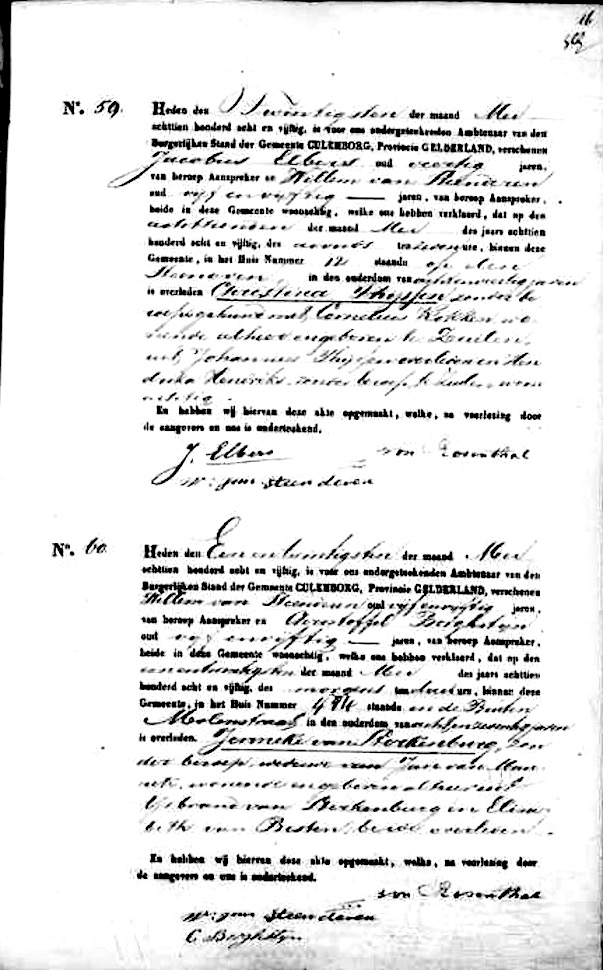 No. 59. Heden den Twintigsten der maand Mei
achttien honderd acht en vijftig, is voor ons ondergeteekenden Ambtenaar van den
Burgerlijken Stand der Gemeente CULEMBORG, Provincie GELDERLAND, verschenen
Jacobus Elbers oud veertig jaren,
van beroep Aanspreker en Willem van Steenderen
oud vijf en vijftig jaren, van beroep Aanspreker,
beide in deze Gemeente woonachtig, welke ons hebben verklaard, dat op den
achttienden der maand Mei des jaars achttien
honderd acht en vijftig, des avonds ten ure, binnen deze
Gemeente, in het Huis Nummer staande op den
in den ouderdom van jaren
is overleden Christina Thijssen zonder be
roep gehuwd met Cornelius Kokken wo
nende alhier en geboren te Zuilen,
uit Johannes Thijssen overleden en Hen
drika Hendriks zonder beroep te Zuilen woon
achtig.
En hebben wij hiervan deze akte opgemaakt, welke, na voorlezing door
de aangevers en ons is onderteekend.
J. Elbers von Rosenthal
W: van Steenderen
No. 60 Heden den Eenentwintigsten der maand Mei
achttien honderd acht en vijftig, is voor ons ondergeteekenden Ambtenaar van den
Burgerlijken Stand der Gemeente CULEMBORG, Provincie GELDERLAND, verschenen
Willem van Steenderen oud vijf envijftig jaren,
van beroep Aanspreker en Christoffel Borghstijn
oud vijf envijftig jaren, van beroep Aanspreker,
beide in deze Gemeente woonachtig, welke ons hebben verklaard, dat op den
eenentwintigsten der maand Mei des jaars achttien
honderd acht en vijftig, des morgens ten ure, binnen deze
Gemeente, in het Huis Nummer staande in de Buiten
Molenstraat in den ouderdom van achtenzestig jaren
is overleden. Jenneke van Kerkenburg, zon
der beroep, weduwe van Jan van Maa
nen, wonende en geboren alhier uit
IJsbrand van Kerkenburg en Elisa
beth van Besten, beide overleden.
En hebben wij hiervan deze akte opgemaakt, welke, na voorlezing door
de aangevers en ons is onderteekend.
von Rosenthal
W: van Steenderen
C. Borghstijn